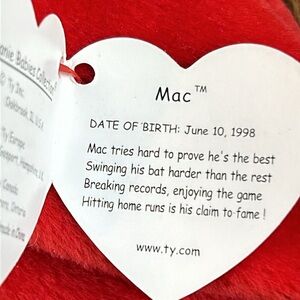 anie Babies Collection
© Ty Inc.
Oakbrook, IL U.S.A.
Ty Europe
Canada
Ontario
Mac™
DATE OF BIRTH: June 10, 1998
Mac tries hard to prove he's the best
Swinging his bat harder than the rest
Breaking records, enjoying the game
Hitting home runs is his claim to fame !
www.ty.com